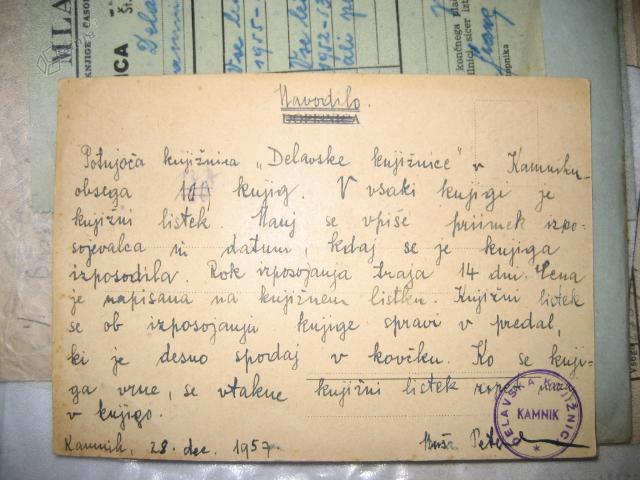 MLA
KNJIGE ČASO
ICA
Dela
Kamni
Vse le
1955-
Vse le
1952-1
ali p
končnega pla
lnici sicer izt
opnika
Navodilo.
DOPISNICA
Potujoča knjižnica „Delavske knjižnice" v Kamniku
obsega knjig. V vsaki knjigi je
knjižni listek. Nanj se vpiše priimek izpo-
sojevalca in datum, kdaj se je knjiga
izposodila. Rok izposojanja traja 14 dni. Cena
je napisana na knjižnem listku. Knjižni listek
se ob izposojanju knjige spravi v predal,
ki je desno spodaj v kovčku. Ko se knji-
ga vrne, se vtakne knjižni listek nazaj
v knjigo.
Kamnik, 28. dec. 1957.
Peter
DELAVSKA KNJIŽNICA
KAMNIK